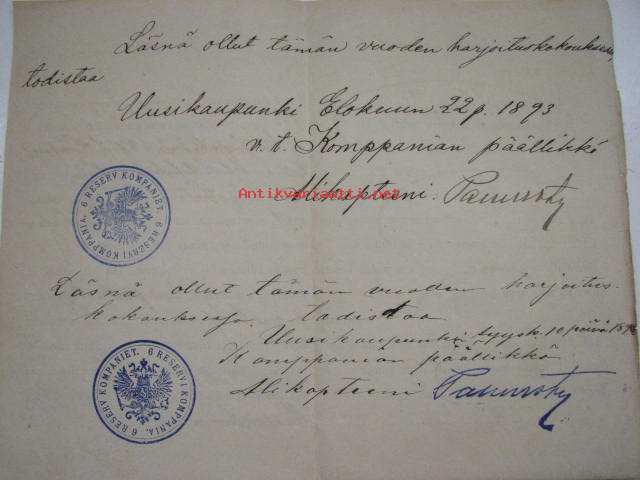 Läsnä ollut tämän vuoden harjoituskokouksessa,
todistaa
Uusikaupunki Elokuun 22 p. 1893
v. t. Komppanian päällikkö
Alikapteeni
Antikvariaatti.net
6 RESERV KOMPANIET. 6 RESERVI KOMPPANIA.
Läsnä ollut tämän vuoden harjoitus-
kokouksessa todistaa
Uusikaupunki syysk. 10 päivä
Komppanian päällikkö
Alikapteeni
6 RESERV KOMPANIET. 6 RESERVI KOMPPANIA.